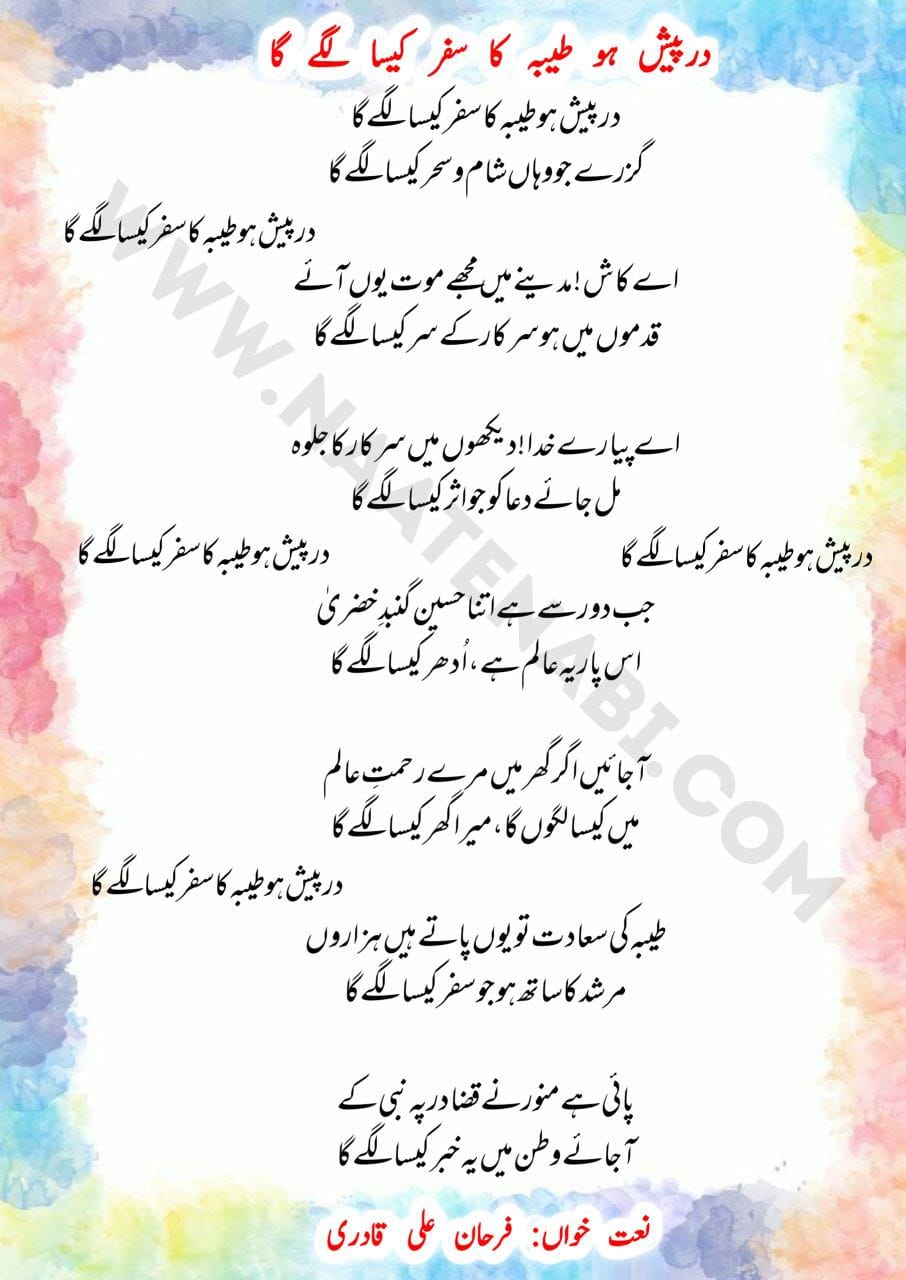 درپیش ہو طیبہ کا سفر کیسا لگے گا
درپیش ہو طیبہ کا سفر کیسا لگے گا
گزرے جو وہاں شام و سحر کیسا لگے گا
درپیش ہو طیبہ کا سفر کیسا لگے گا
اے کاش! مدینے میں مجھے موت یوں آئے
قدموں میں ہو سرکار کے سر کیسا لگے گا
اے پیارے خدا! دیکھوں میں سرکار کا جلوہ
مل جائے دعا کو جو اثر کیسا لگے گا
درپیش ہو طیبہ کا سفر کیسا لگے گا
درپیش ہو طیبہ کا سفر کیسا لگے گا
جب دور سے ہے اتنا حسین گنبدِ خضریٰ
اس پار یہ عالم ہے، اُدھر کیسا لگے گا
آ جائیں اگر گھر میں مرے رحمتِ عالم
میں کیسا لگوں گا، میرا گھر کیسا لگے گا
درپیش ہو طیبہ کا سفر کیسا لگے گا
طیبہ کی سعادت تو یوں پاتے ہیں ہزاروں
مرشد کا ساتھ ہو جو سفر کیسا لگے گا
پائی ہے منور نے قضا در پہ نبی کے
آ جائے وطن میں یہ خبر کیسا لگے گا
نعت خواں: فرحان علی قادری
WWW.NAATENABI.COM